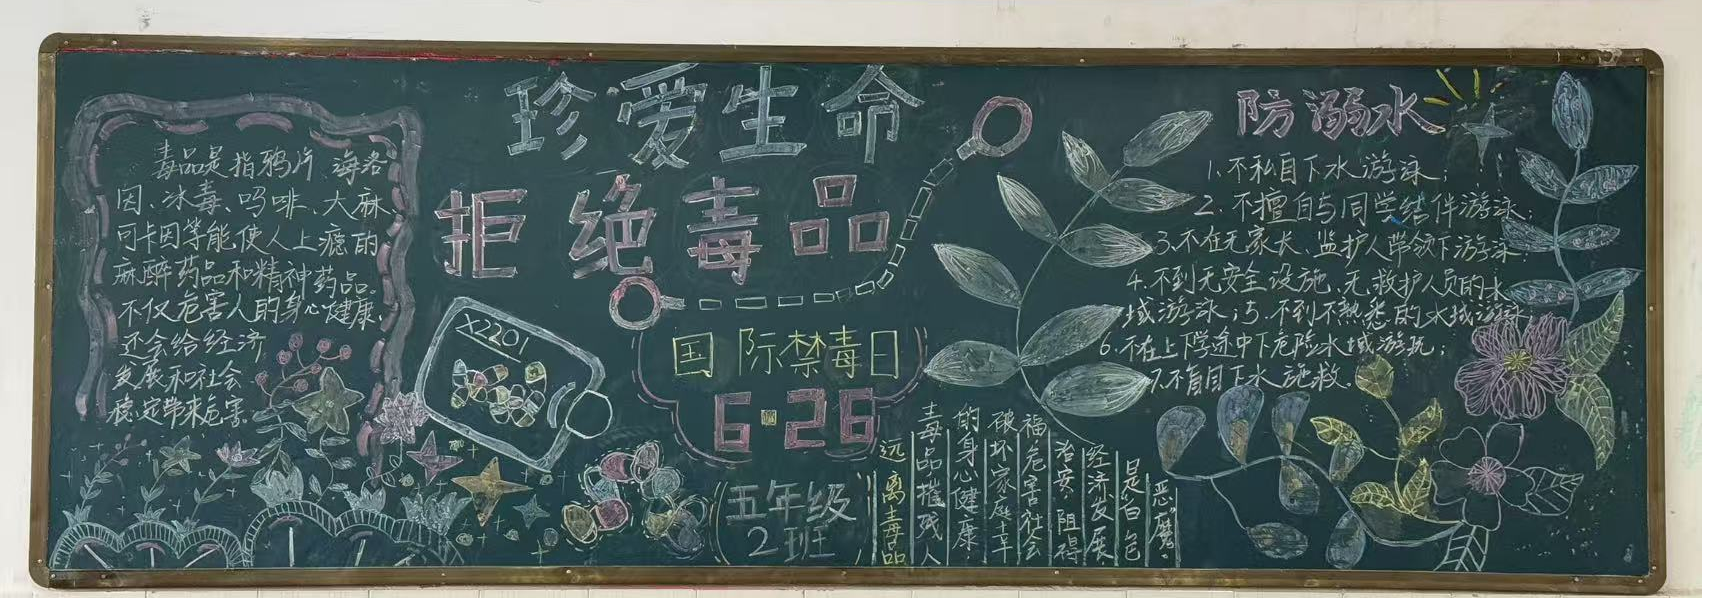 珍爱生命
拒绝毒品
毒品是指鸦片、海洛
因、冰毒、吗啡、大麻、
可卡因等能使人上瘾的
麻醉药品和精神药品。
不仅危害人的身心健康,
还会给经济
发展和社会
稳定带来危害。
X2201
国际禁毒日
6·26
五年级
2班
远离毒品
毒品摧残人
的身心健康
破坏家庭幸
福,危害社会
治安,阻碍
经济发展,
是白色
恶魔。
防溺水
1.不私自下水游泳;
2.不擅自与同学结伴游泳;
3.不在无家长、监护人带领下游泳;
4.不到无安全设施、无救护人员的水
域游泳;5.不到不熟悉的水域游泳;
6.不在上下学途中下危险水域游玩;
7.不盲目下水施救。